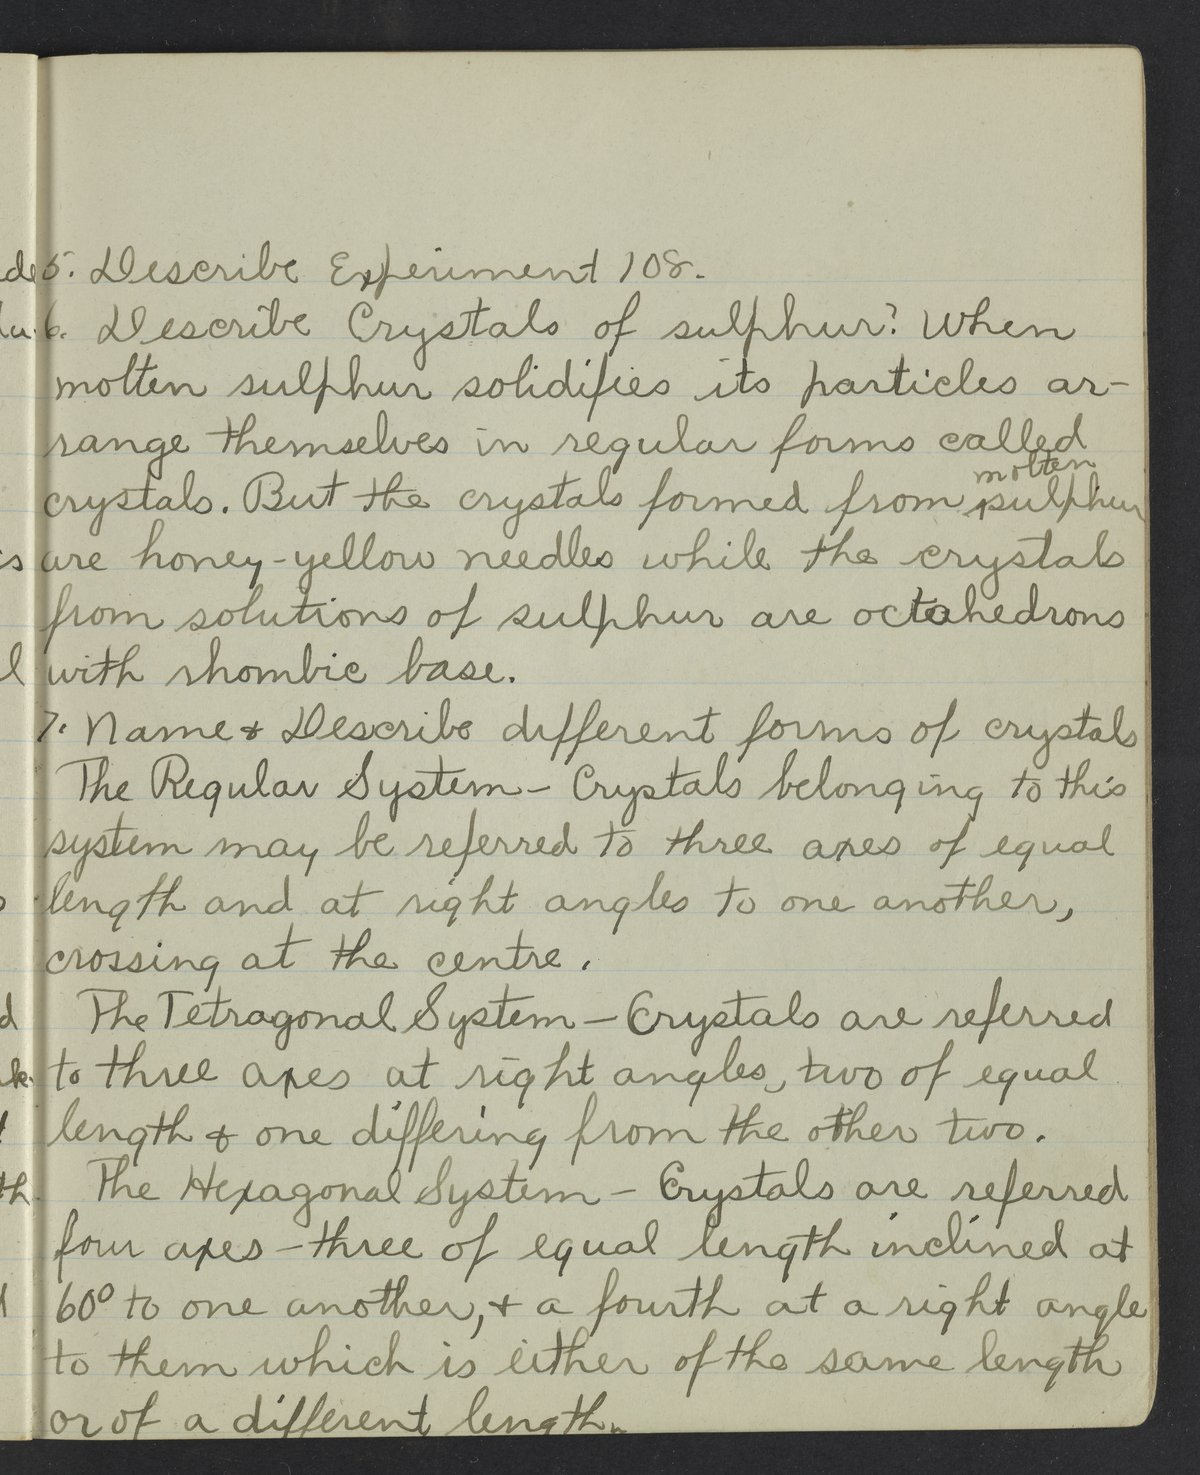 5. Describe Experiment 108.
6. Describe Crystals of sulphur? When
molten sulphur solidifies its particles ar-
range themselves in regular forms called
crystals. But the crystals formed from molten sulphur
are honey-yellow needles while the crystals
from solutions of sulphur are octahedrons
with rhombic base.
7. Name & Describe different forms of crystals
The Regular System - Crystals belonging to this
system may be referred to three axes of equal
length and at right angles to one another,
crossing at the centre.
The Tetragonal System - Crystals are referred
to three axes at right angles, two of equal
length & one differing from the other two.
The Hexagonal System - Crystals are referred
four axes - three of equal length inclined at
60° to one another, & a fourth at a right angle
to them which is either of the same length
or of a different length.